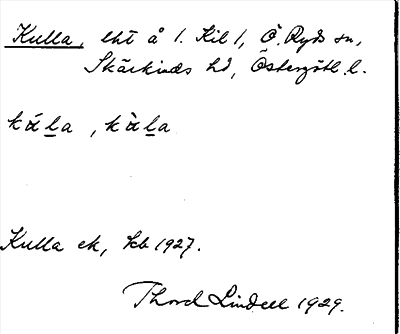 Kulla, lht å 1. Kil 1, Ö. Ryds sn,
Skärkinds hd, Östergötl. l.
kála, kàla
Kulla ek, kb 1927.
Thord Lindell 1929.